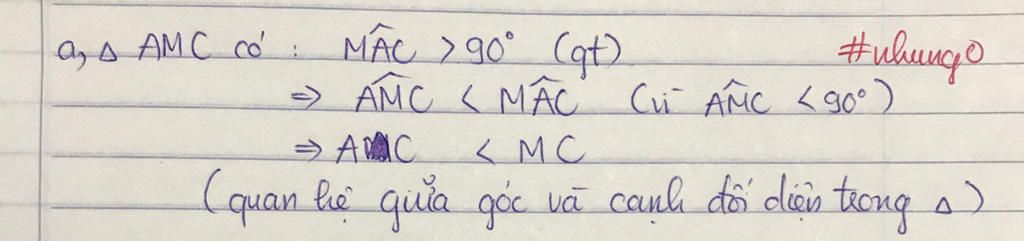 a, △ AMC có : MÂC > 90° (gt) #nhung0
⇒ AM̂C < MÂC (vì AM̂C < 90°)
⇒ AC < MC
(quan hệ giữa góc và cạnh đối diện trong △)